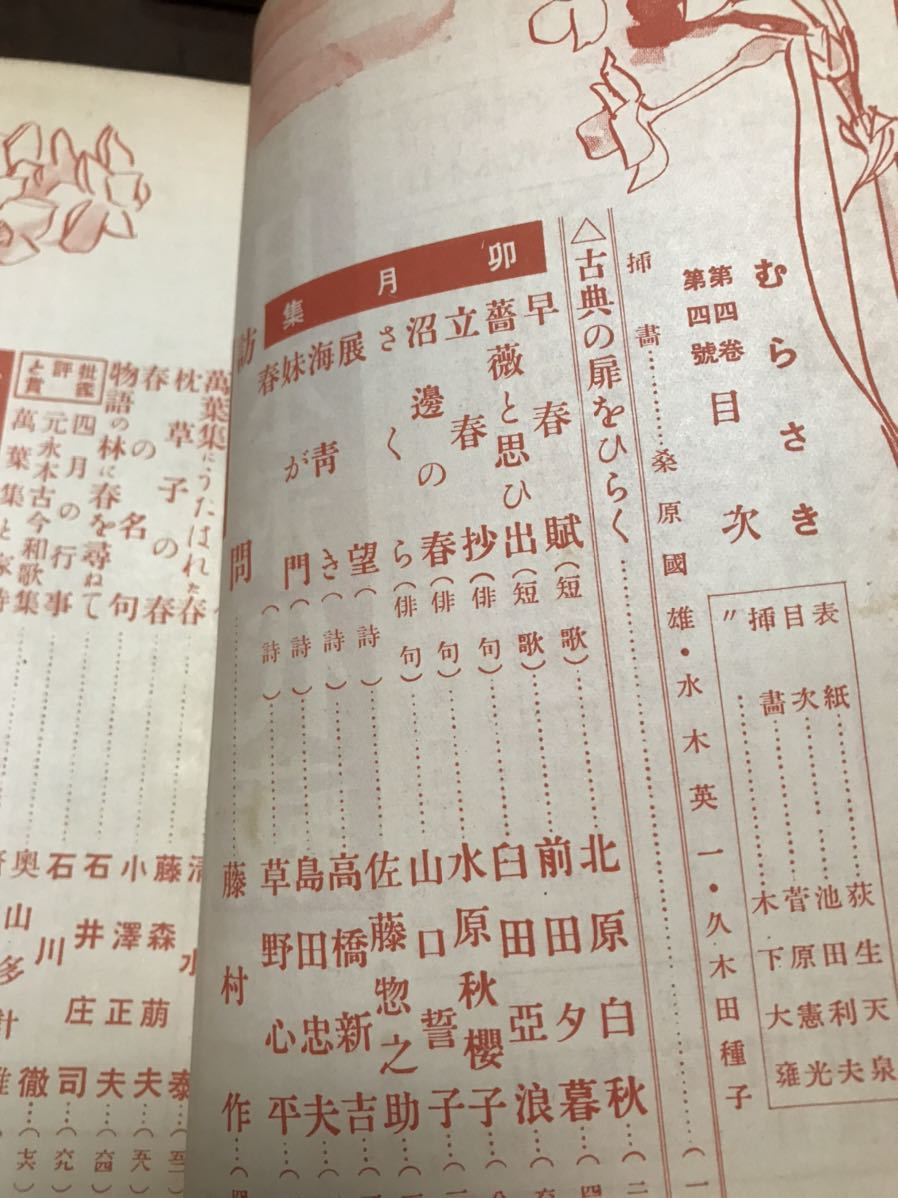 むらさき
第四卷
第四號
目次
表紙……荻生天泉
目次……池田利夫
挿畫……菅原憲光
〃……木下大雍
挿畫……桑原國雄・水木英一・久木田種子
△古典の扉をひらく……(一
卯月集
早春賦(短歌)……北原白秋(二
薔薇と思ひ出(短歌)……前田夕暮(四
立春抄(俳句)……臼田亞浪(六
沼邊の春(俳句)……水原秋櫻子(八
さくら(俳句)……山口誓子(一
展望(詩)……佐藤惣之助(一
海靑き(詩)……高橋新吉(一
妹が門(詩)……島田忠夫(
春……草野心平(
訪問……藤村作(
萬葉集にうたはれた春
枕草子の春……藤森萠夫(五八)
春の名句……小澤正夫(六四)
物語の林に春を尋ねて……石井庄司(六九)
四月の行事……石川徹(七六)
批評と鑑賞
元永本古今和歌集……奧山
萬葉集と